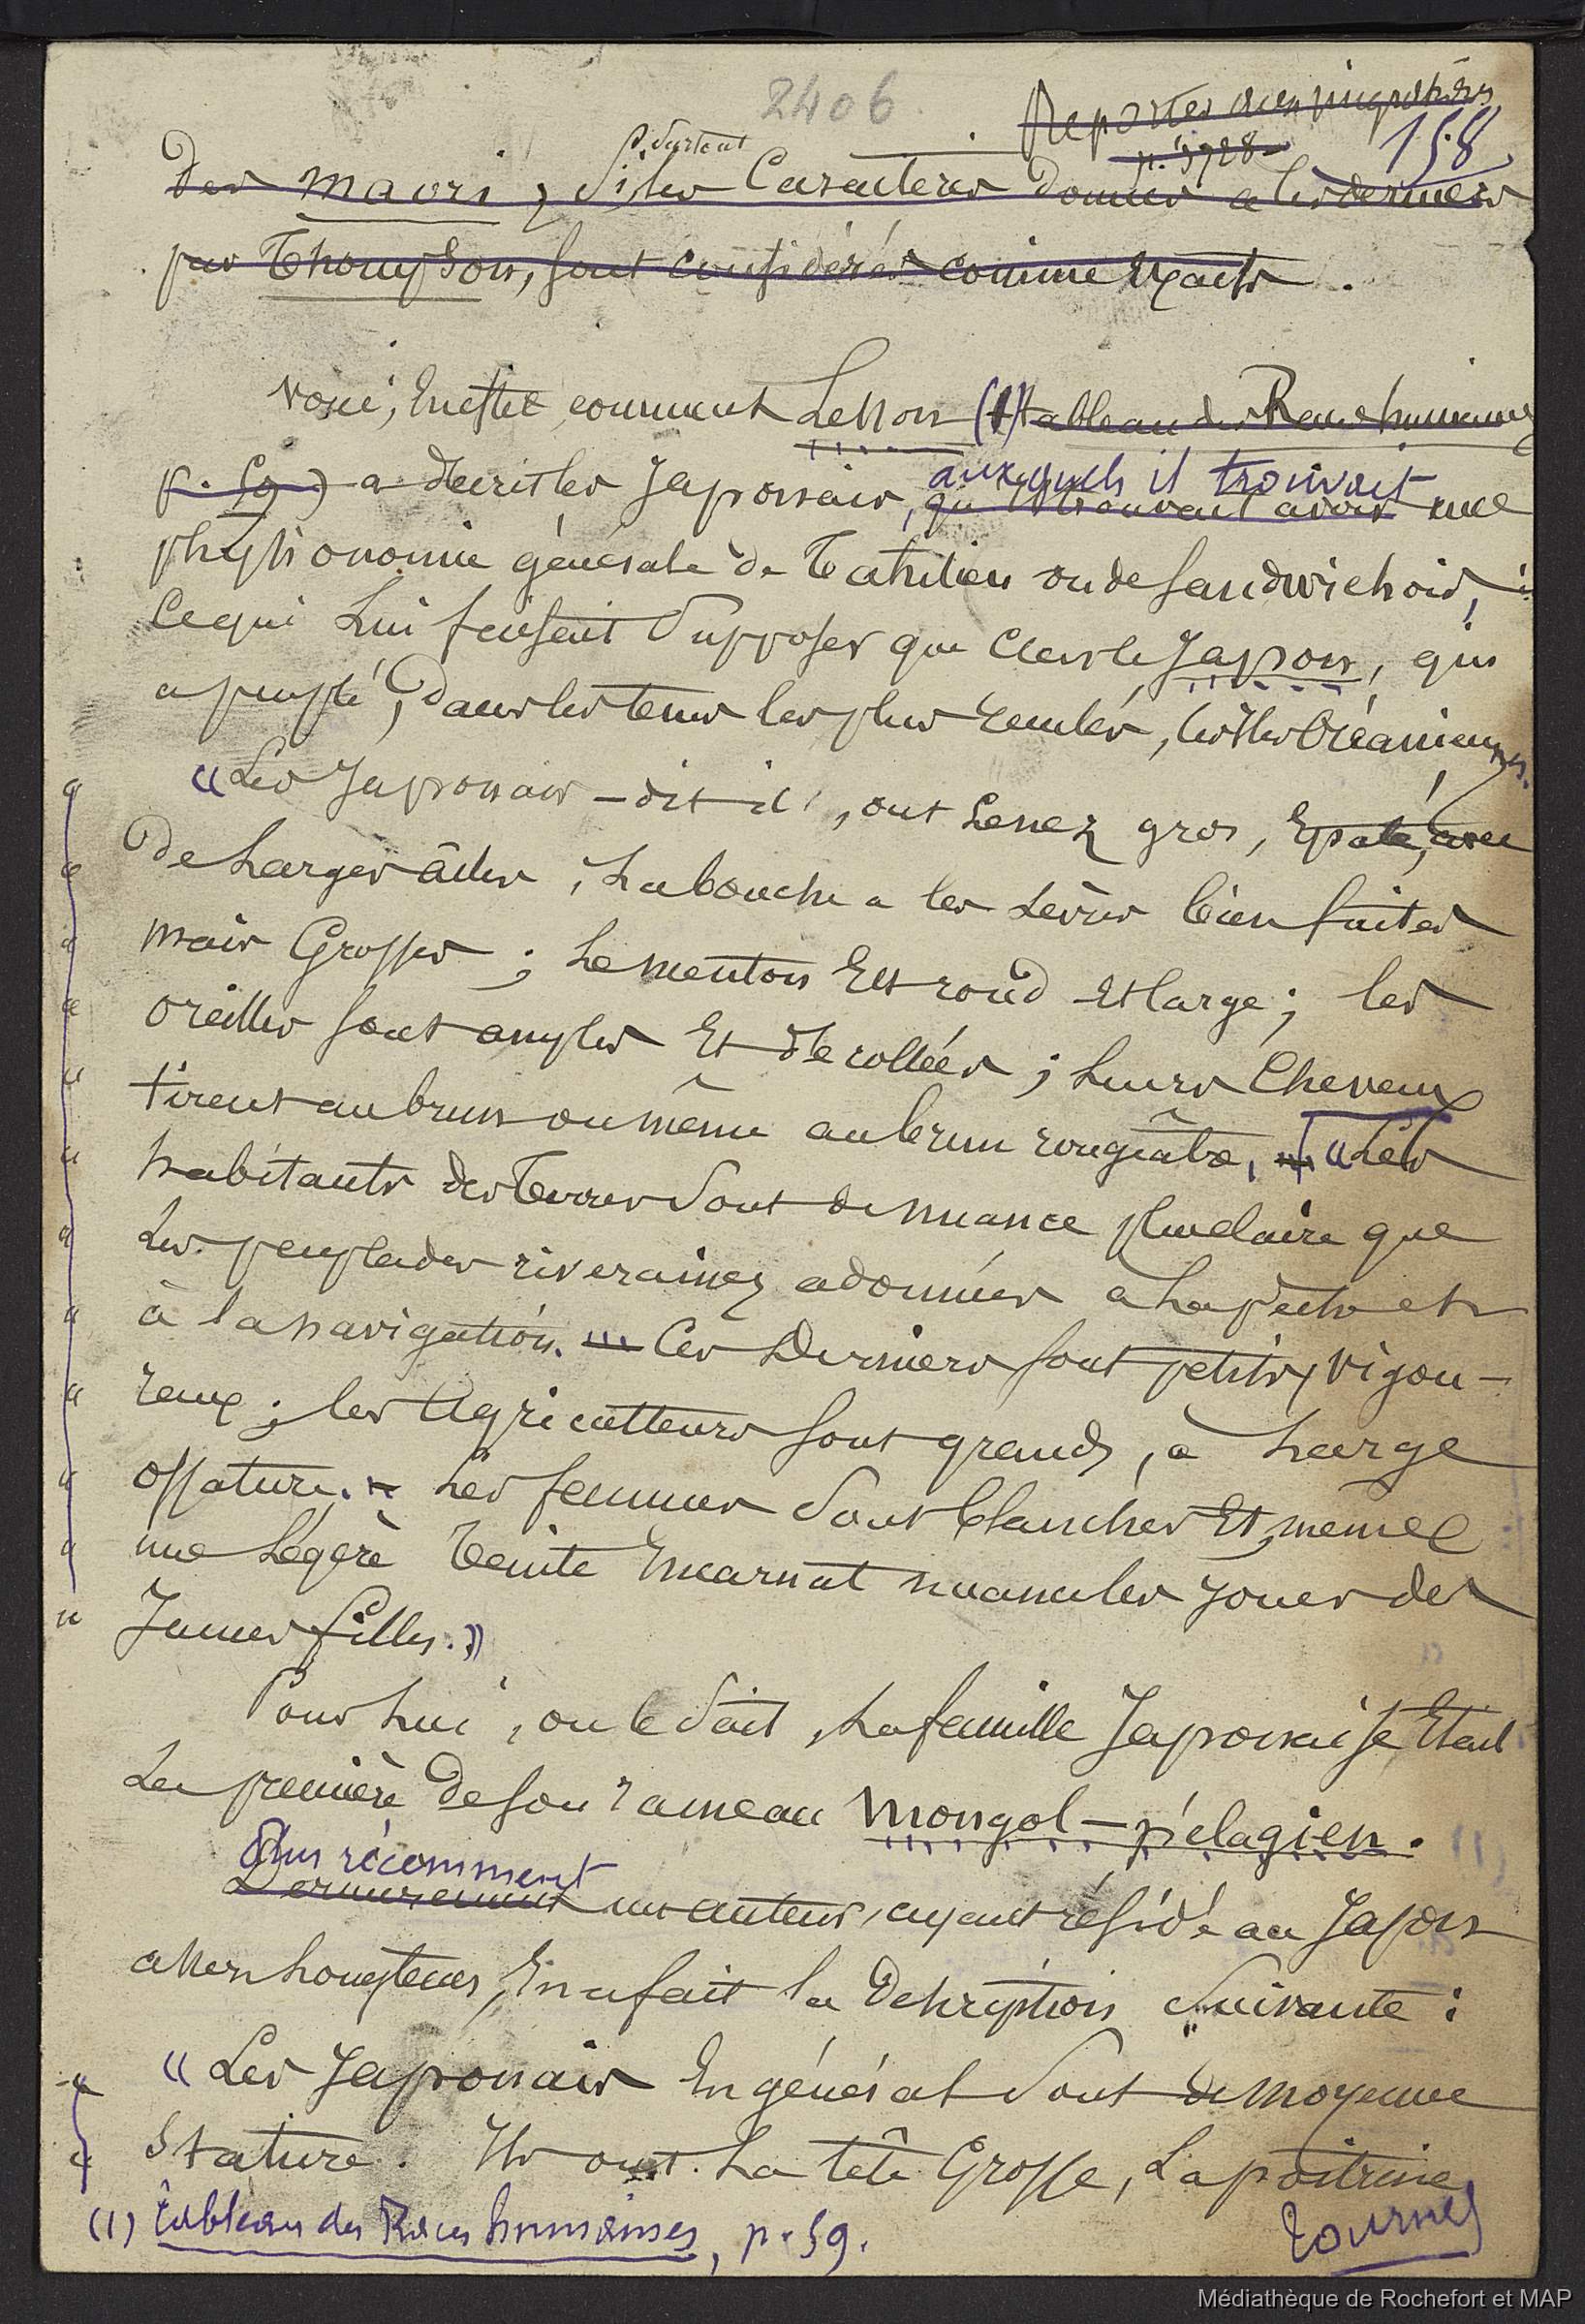 2406
Reporter aux migrations
p. 3728
158
Des maori, Si, surtout les Caractères donnés à ces derniers
par Thompson, sont considérés comme exacts.
Voici, En effet, comment Lesson (1) tableau des Races humaines
p. 59) a décrit les Japonais, qu'il trouvait avoir auxquels il trouvait une
physionomie générale de Tahitien ou de Sandwichois,
Ce qui Lui faisait Supposer que C'est le Japon, qui
a peuplé, Dans les tems les plus reculés, les îles Océaniennes.
"Les Japonais – dit-il, ont Le nez gros, Epaté, avec
De Larges âiles, La bouche a les Lèvres bien faites
mais Grosses ; Le menton Est rond et large ; les
oreilles sont amples Et décollées ; Leurs Cheveux
tirent au brun ou même au brun rougeâtre. "Les
habitants des Terres Sont de nuance plus claire que
Les peuplades riveraines adonnées à La pêche et
à la navigation. ... Ces Derniers sont petits, vigou-
reux ; les Agriculteurs sont grands, à Large
ossature. Les femmes Sont blanches Et même
une Légère Teinte Incarnat nuance les joues des
Jeunes filles."
Pour Lui, on le Sait, La famille Japonaise Etait
La première De son rameau Mongol-pélagien.
Plus récemment
Dernièrement un auteur, ayant résidé au Japon
assez Longtems, En a fait la Description Suivante :
"Les Japonais En général Sont de moyenne
Stature. Ils ont La tête Grosse, La poitrine
(1) tableau des Races humaines, p. 59.
tournez
Médiathèque de Rochefort et MAP